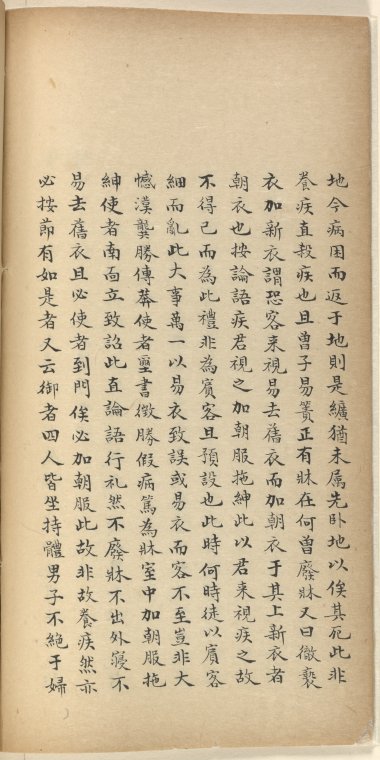 地令病困而返于地則是纊猶未属先卧地以俟其死此非
養疾直殺疾也且曽子易簀正有牀在何曽廢牀又曰徹褻
衣加新衣謂恐客来視易去舊衣而加朝衣于其上新衣者
朝衣也按論語疾君視之加朝服拖紳此以君来視疾之故
不得已而為此禮非為賓客且預設也此時何時徒以賓客
細而亂此大事萬一以易衣致誤或易衣而客不至豈非大
憾漢龔勝傳莽使者璽書徴勝假病篤為牀室中加朝服拖
紳使者南面立致詔此直論語行礼然不廢牀不出外寢不
易去舊衣且必使者到門俟必加朝服此故非故養疾然亦
必按節有如是者又云御者四人皆坐持體男子不絶于婦